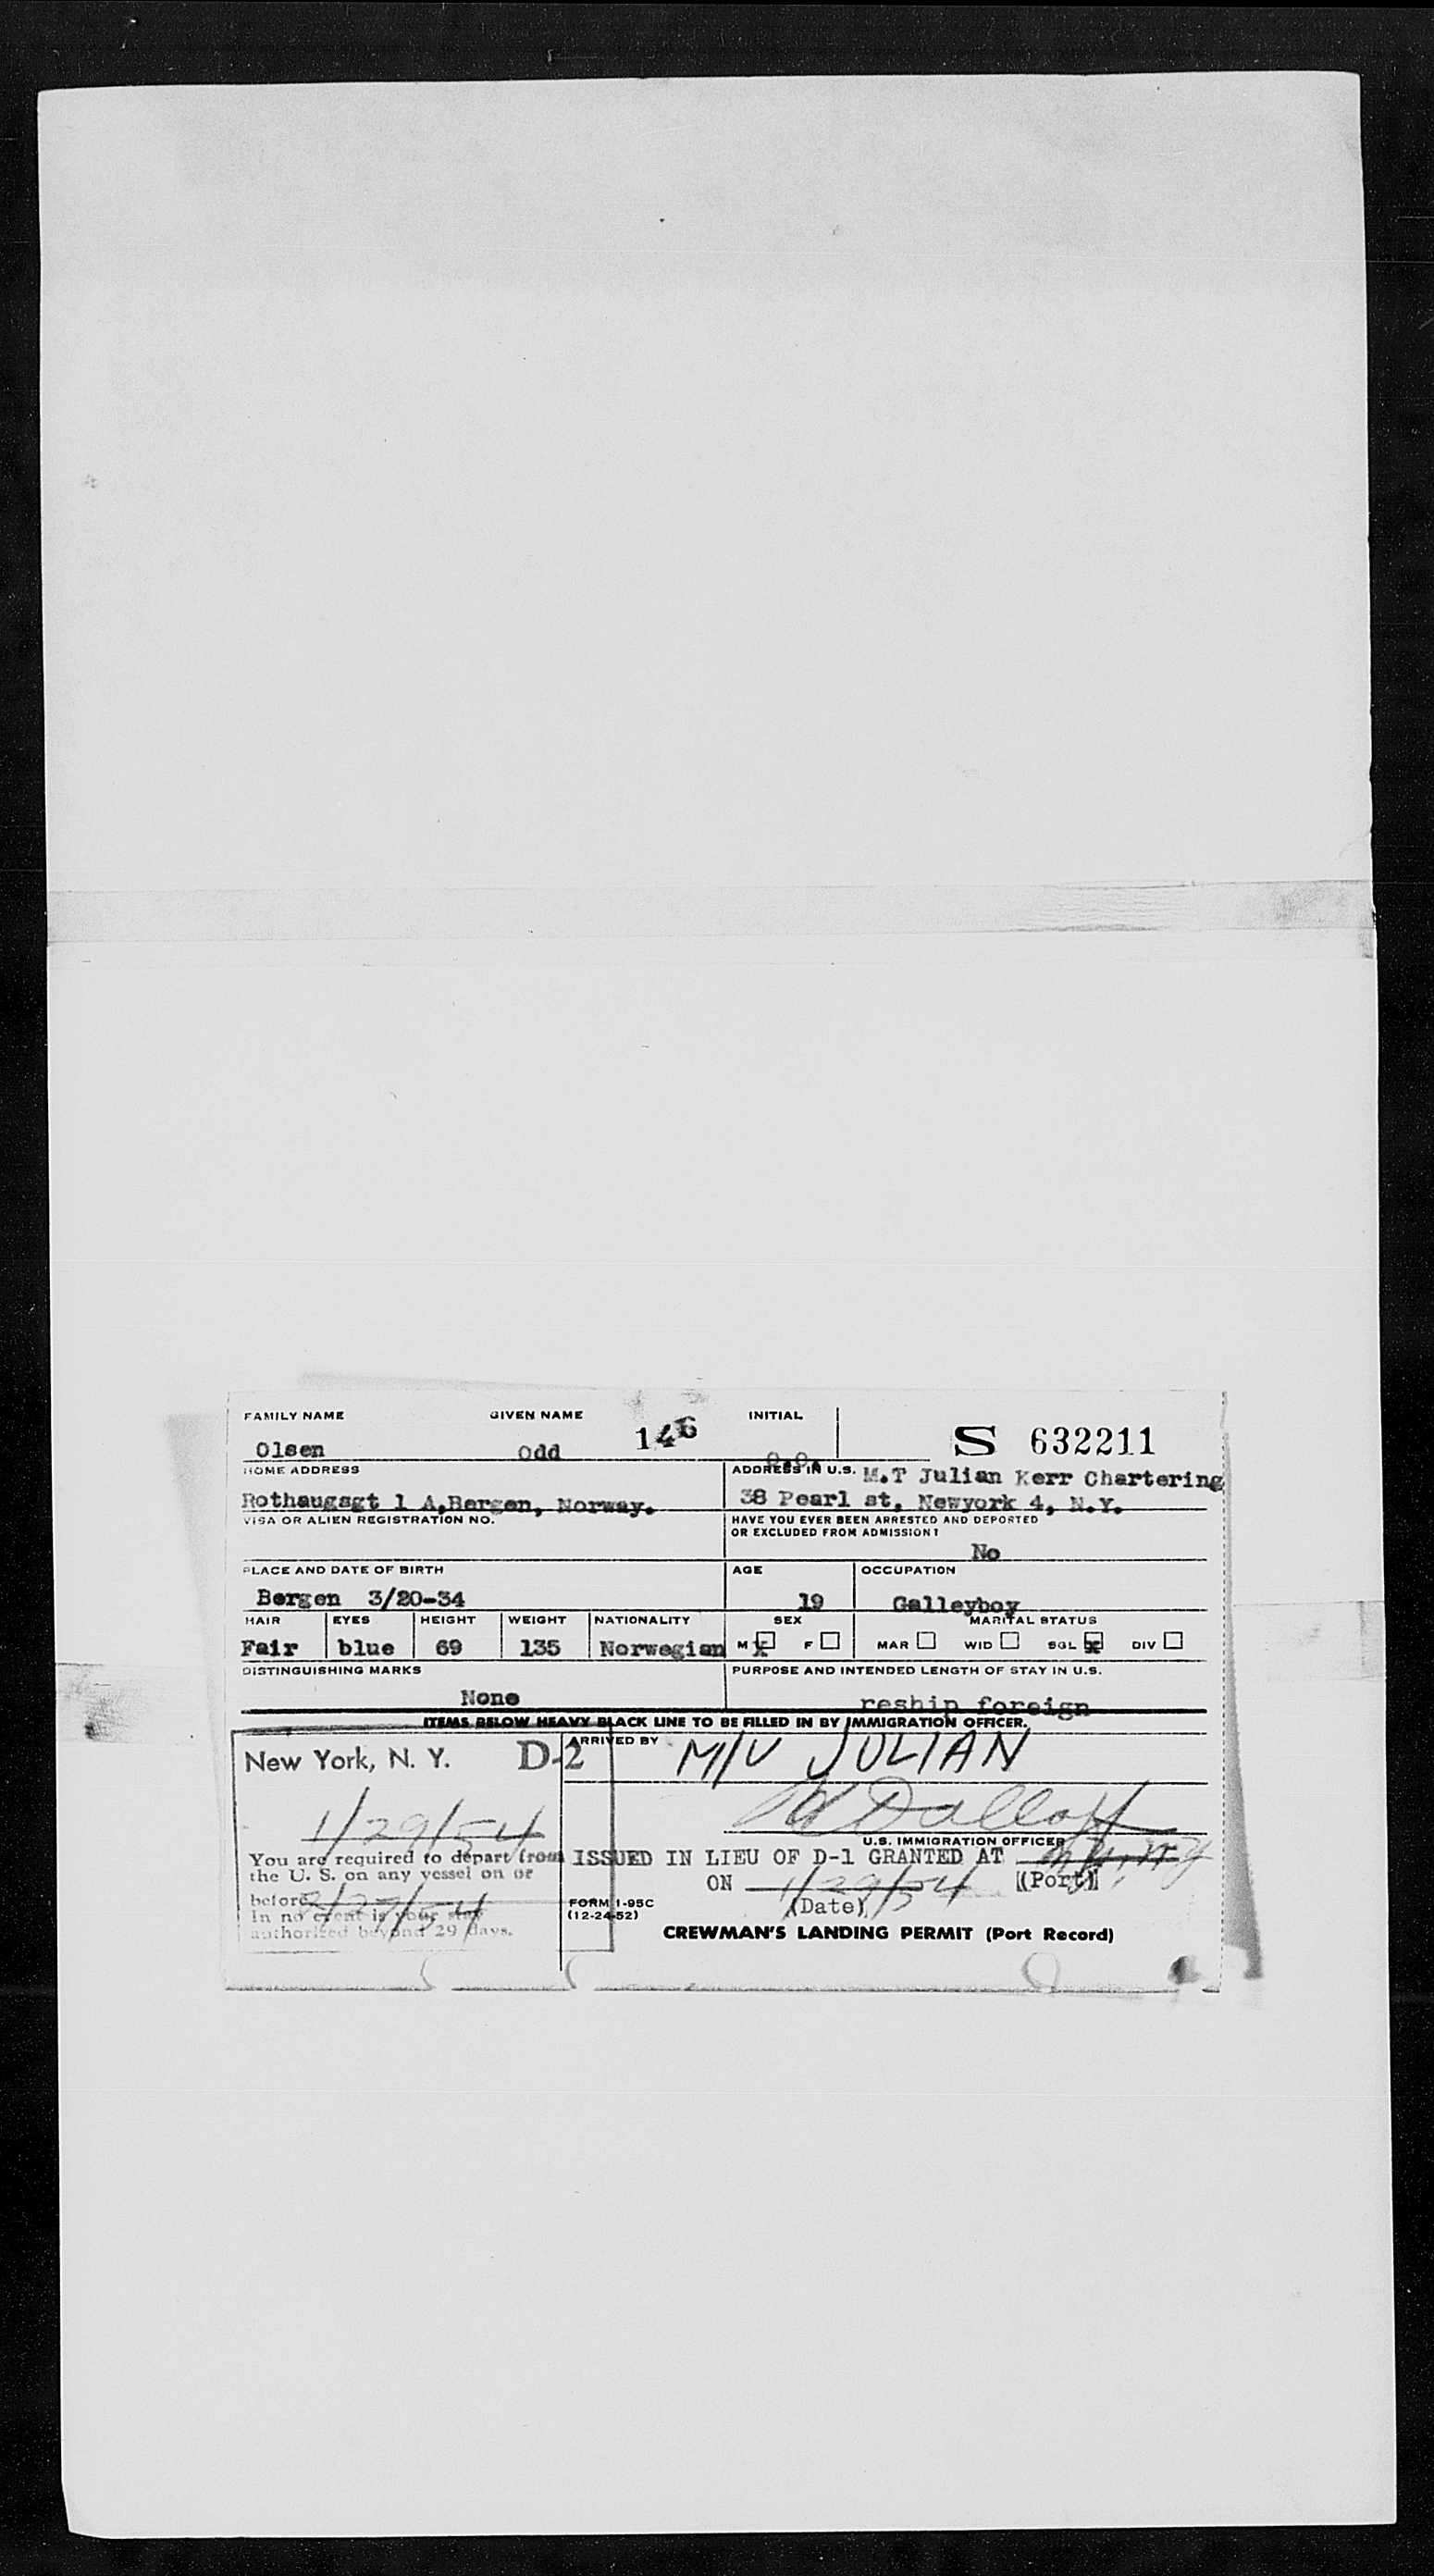 FAMILY NAME GIVEN NAME INITIAL
Olsen Odd 146 O.O. S 632211
HOME ADDRESS ADDRESS IN U.S. M.T Julian Kerr Chartering
Rothaugsgt 1 A,Bergen, Norway. 38 Pearl st, Newyork 4, N.Y.
VISA OR ALIEN REGISTRATION NO. HAVE YOU EVER BEEN ARRESTED AND DEPORTED
OR EXCLUDED FROM ADMISSION?
No
PLACE AND DATE OF BIRTH AGE OCCUPATION
Bergen 3/20-34 19 Galleyboy
HAIR EYES HEIGHT WEIGHT NATIONALITY SEX MARITAL STATUS
Fair blue 69 135 Norwegian M X F MAR WID SGL X DIV
DISTINGUISHING MARKS PURPOSE AND INTENDED LENGTH OF STAY IN U.S.
None reship foreign
ITEMS BELOW HEAVY BLACK LINE TO BE FILLED IN BY IMMIGRATION OFFICER.
New York, N. Y. D-2 ARRIVED BY M/V JULIAN
1/29/54
U.S. IMMIGRATION OFFICER
You are required to depart from ISSUED IN LIEU OF D-1 GRANTED AT
the U. S. on any vessel on or ON 1/29/54 (Port)
before (Date)
In no event is your stay FORM I-95C
authorized beyond 29 days. (12-24-52)
CREWMAN'S LANDING PERMIT (Port Record)